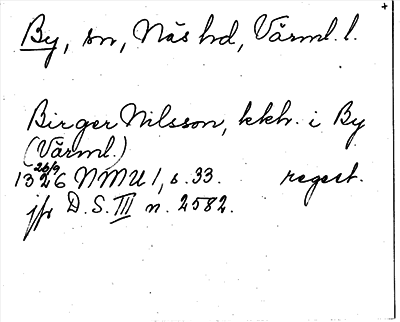 By, sn, Näs hd, Värml. l.
Birger Nilsson, kkh. i By
(Värml.)
1326 26/9 NMU 1, s. 33. regest.
jfr D.S. III n. 2582.